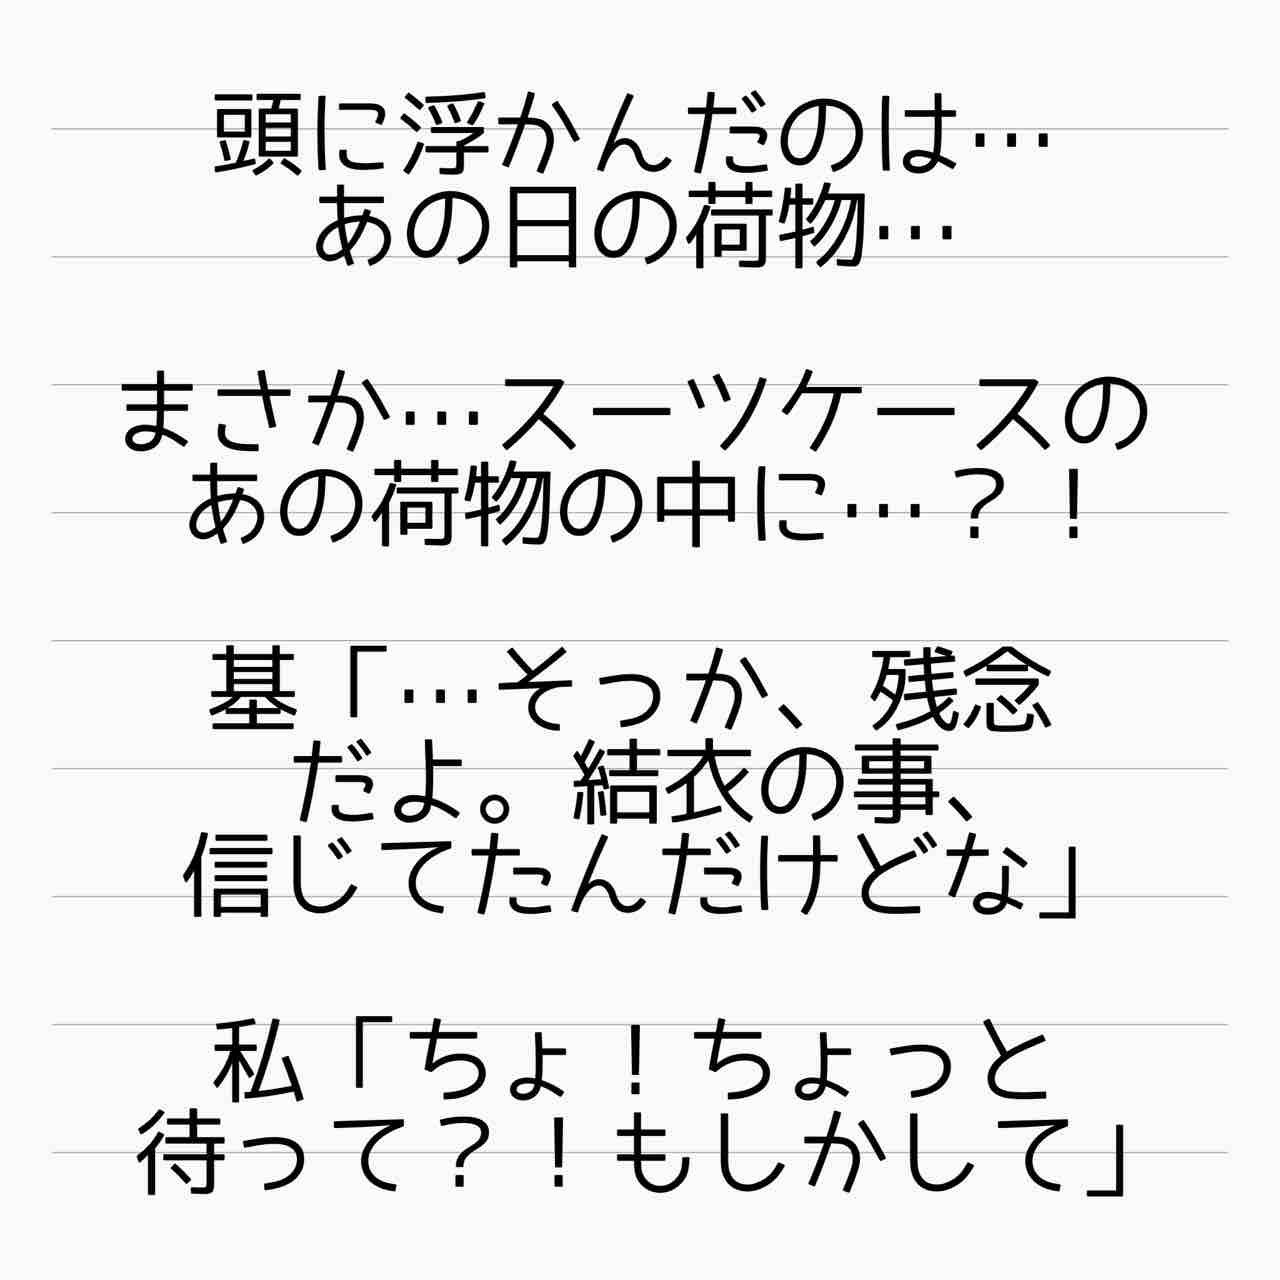 頭に浮かんだのは…
あの日の荷物…
まさか…スーツケースの
あの荷物の中に…？！
基「…そっか、残念
だよ。結衣の事、
信じてたんだけどな」
私「ちょ！ちょっと
待って？！もしかして」